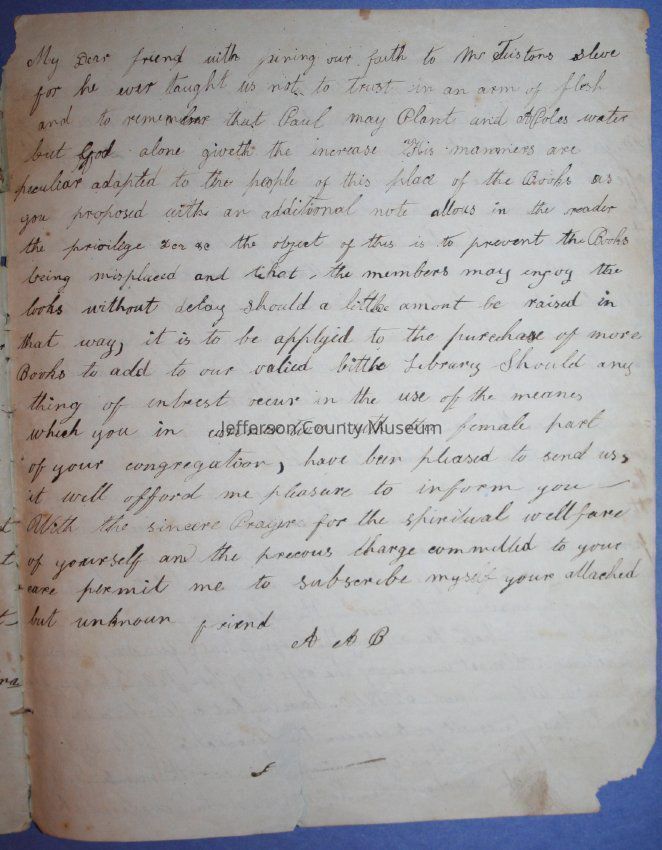 My Dear friend with pining our faith to Mr Tustons sleve
for he ever taught us not to trust in an arm of flesh
and to remember that Paul may Plant and Apolos water
but God alone giveth the increase His manners are
peculiar adapted to the people of this place of the Books as
you proposed with an additional note allous in the reader
the priviledge &c &c the object of this is to prevent the Books
being misplaced and that the members may enjoy the
books without delay should a little amont be raised in
that way, it is to be applyied to the purechase of more
Books to add to our valied little Library Should any
thing of intrest occur in the use of the meanes
which you in with the female part
of your congregatoon, have been pleased to send us,
it will afford me pleasure to inform you
With the sincere Prayer for the spiritual wellfare
of yourself and the precous Charge committed to your
care permit me to subscribe myself your attached
but unknoun friend
A A B
Jefferson County Museum